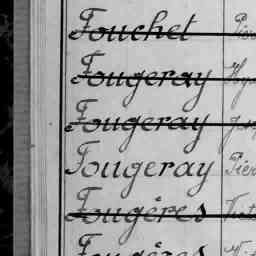 Fouchet
Fougeray
Fougeray
Fougeray Pier
Fougères
Fougères